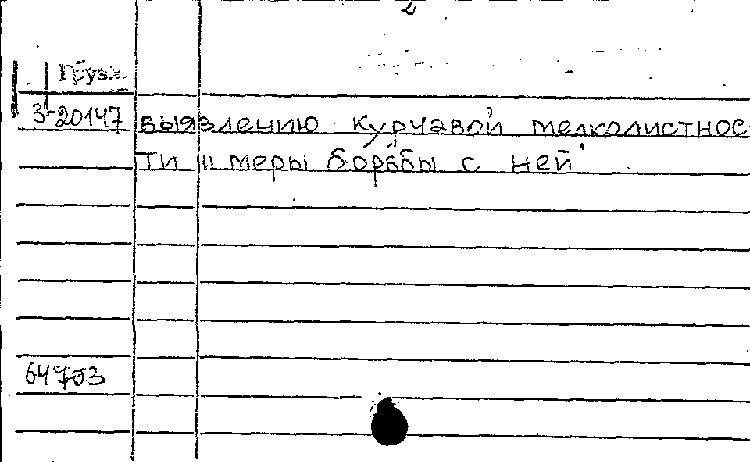 2
Грузи.
3-20147 выявлению курчавой мелколистнос
ти и меры борьбы с ней
64703